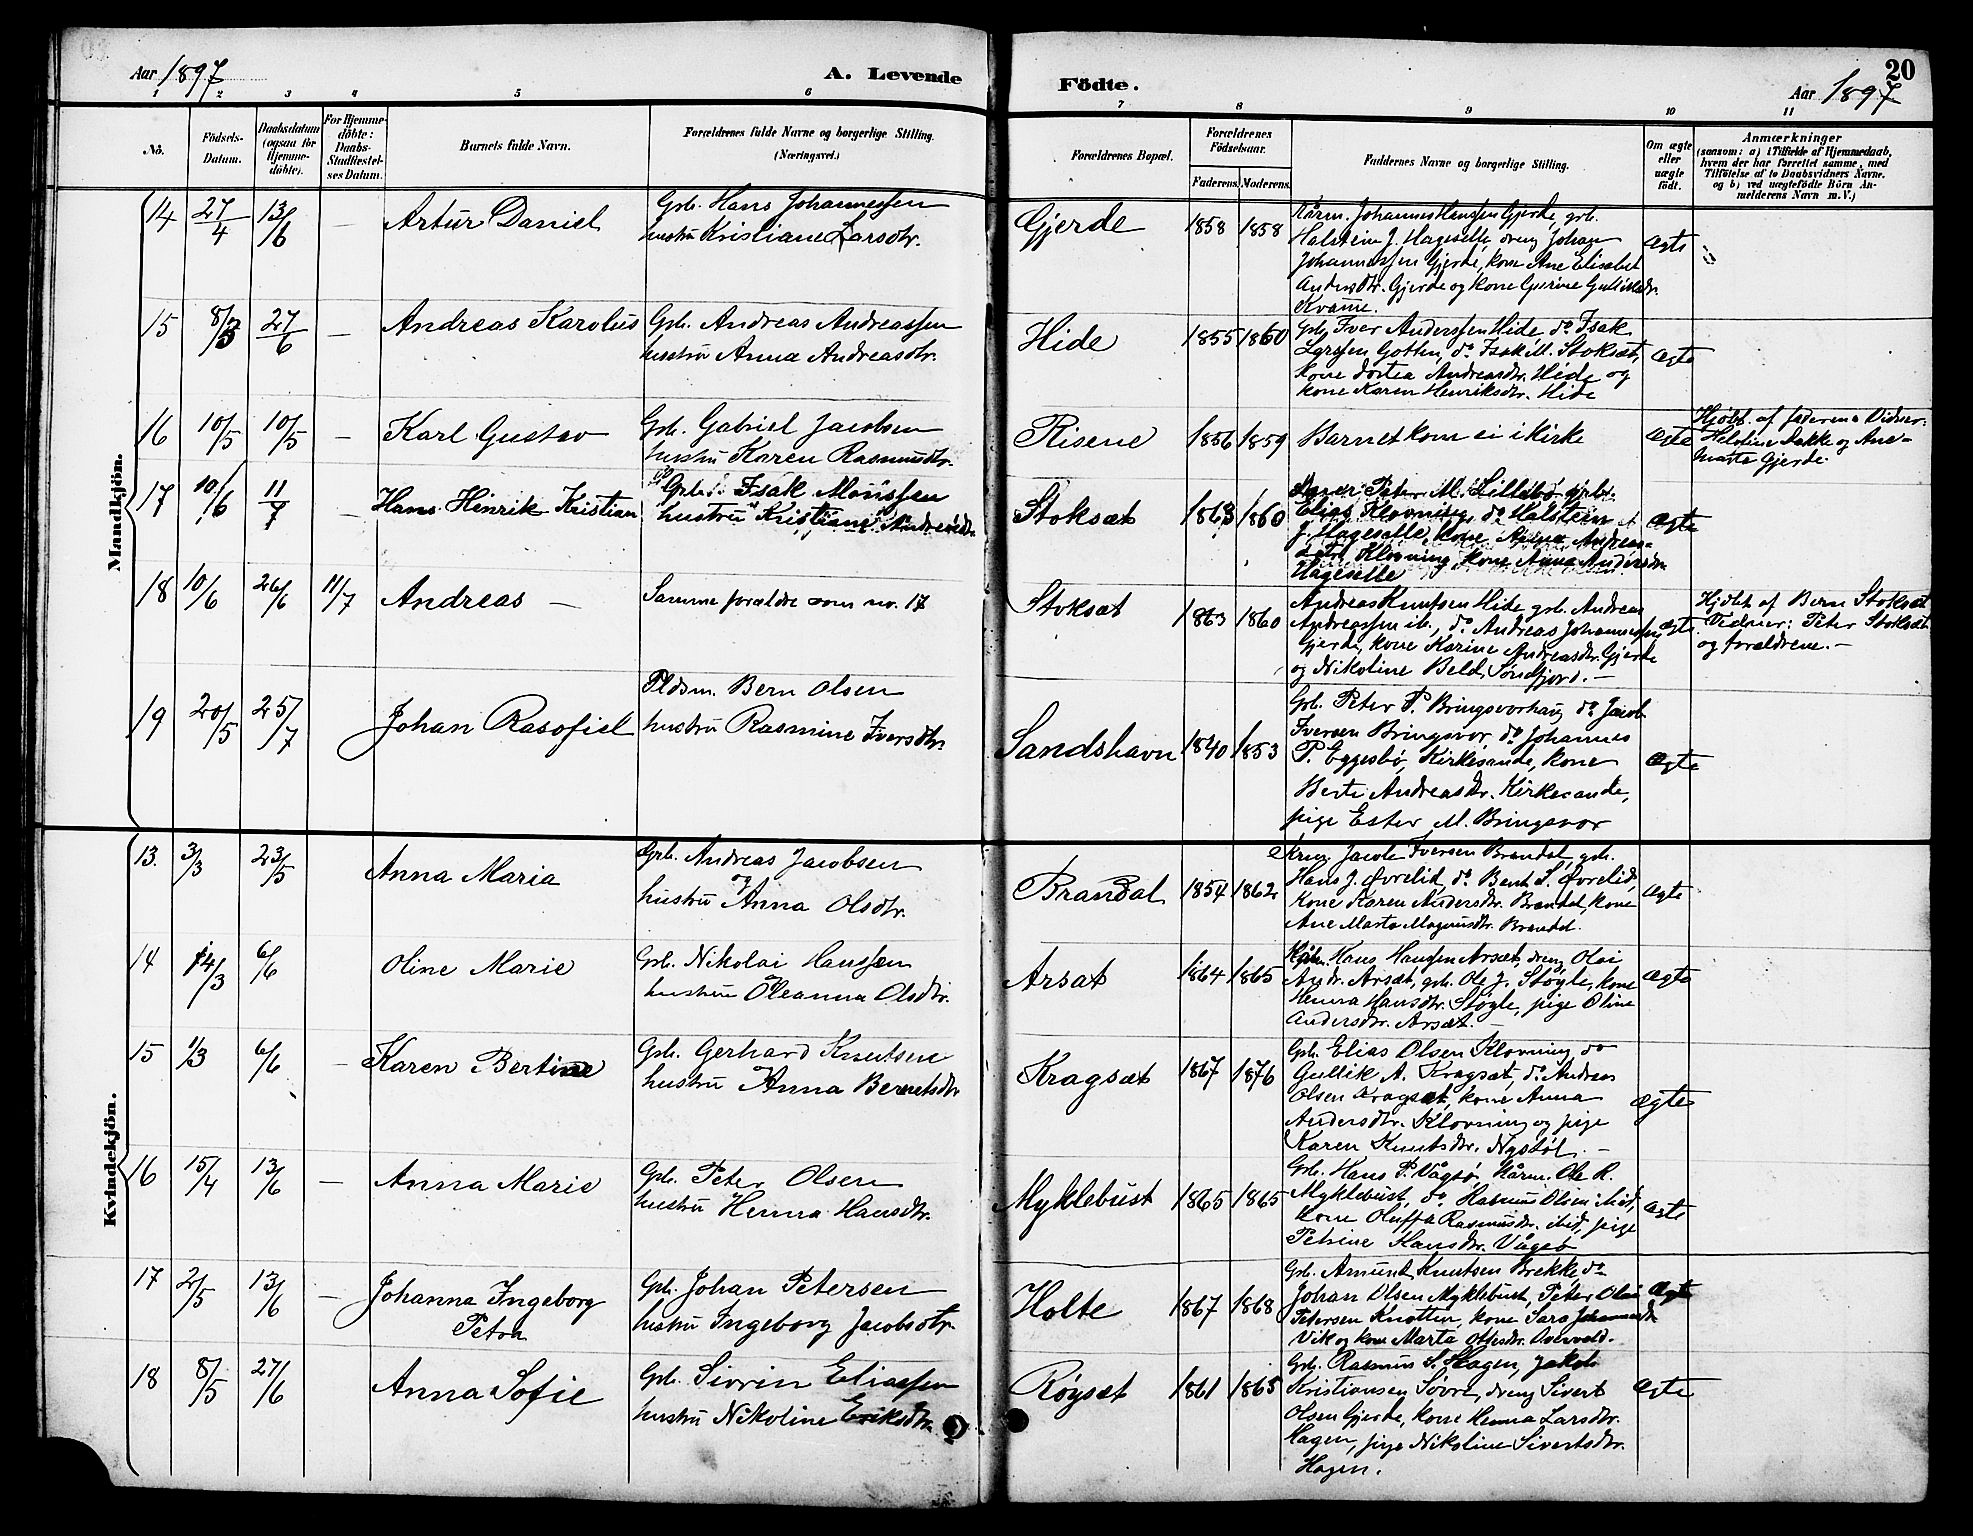 Aar 1897
A. Levende
Födte.
Aar 1897
20
1 2 3 4 5 6 7 8 9 10 11
No.
Födsels-
Datum.
Daabsdatum
(ogsaa for
Hjemme-
döbte).
For Hjemme-
döbte:
Daabs-
Stadfæstel-
ses Datum.
Barnets fulde Navn.
Forældrenes fulde Navne og borgerlige Stilling.
(Næringsvei.)
Forældrenes Bopæl.
Forældrenes
Födselsaar.
Faderens. Moderens.
Faddernes Navne og borgerlige Stilling.
Om ægte
eller
uægte
født.
Anmærkninger
(saasom: a) i Tilfælde af Hjemmedaab,
hvem der har forrettet samme, med
Tilföielse af to Daabsvidners Navne.
og b) ved uægtefödte Börn An-
melderens Navn m. V.)
Mandkjön.
14 27/4 13/6 — Artur Daniel
Grb. Hans Johannessen
hustru Kristiane Larsdtr.
Gjerde 1858 1858
Kårm. Johannes Hanssen Gjerde, grb.
Halstein J. Hageselle, dreng Johan
Johannessen Gjerde, kone Ane Elisabet
Andersdtr. Gjerde og kone
Kvame.
ægte
15 8/3 27/6 — Andreas Karolus
Grb. Andreas Andreassen
hustru Anna Andreasdtr.
Hide 1855 1860
Grb. Iver Anderssen Hide, do Isak
Larssen Gotten, do Isak M. Stoksæt,
kone Dortea Andreasdtr. Hide og
kone Karen Henriksdtr. Hide
ægte
16 10/5 10/5 — Karl Gustav
Grb. Gabriel Jacobsen
hustru Karen Rasmusdtr.
Risene 1856 1859
Barnet kom ei i Kirke
ægte
Hjdbt. af faderen. Vidner:
Bakke og Ane-
Marta Gjerde.
17 10/6 11/7 — Hans Hinrik Kristian
Grb. Isak Monssen
hustru Kristiane
Stoksæt 1863 1860
Peter M. Lillebø grb.
Elias Klovning, do Halstein
J. Hageselle, kone Anna Andreas-
dtr. Klovning, kone Anna Andersdtr.
Hageselle
ægte
18 10/6 26/6 11/7 Andreas —
Samme forældre som no. 17
Stoksæt 1863 1860
Andreas Knutsen Hide, grb. Andreas
Andreassen ib., do Andreas Johannessen
Gjerde, kone Karine Andreasdtr. Gjerde
og Nikoline Beld, Søndfjord. —
ægte
Hjdbt. af Bern Stoksæt
Vidner: Peter Stoksæt
og forældrene. —
19 20/5 25/7 Johan Rasofiel
Pldsm. Bern Olsen
hustru Rasmine Iversdtr.
Sandshavn 1840 1853
Grb. Peter P. Bringsvorhaug do Jacob
Iversen Bringsvor, do Johannes
P. Eggesbø, Kirkesande, kone
Berte Andreasdtr. Kirkesande,
pige Ester M. Bringsvor
ægte
Kvindekjön.
13. 3/3 23/5 Anna Maria
Grb. Andreas Jacobsen
og
hustru Anna Olsdtr.
Brandal 1854 1862
Jacob Iversen Brandal, grb.
Hans J. Øvrelid, do Bent S. Øvrelid,
kone Karen Andersdtr. Brandal, kone
Ane Marta Magnusdtr. Brandal.
ægte
14 14/3 6/6 Oline Marie
Grb. Nikolai Hanssen
hustru Oleanna Olsdtr.
Arsæt 1864 1865
Hans Hansen Arsæt, dreng Olai
Andr. Arsæt, grb. Ole J. Støyle, kone
Henna Hansdtr. Støyle, pige Oline
Andersdtr. Arsæt. —
ægte
15 1/3 6/6 — Karen Bertine
Grb. Gerhard Knutsen
hustru Anna Berntsdtr
Kragsæt 1867 1876
Grb. Elias Olsen Klovning do
Gullik A. Kragsæt, do Andreas
Olsen Kragsæt, kone Anna
Andersdtr. Klovning og pige
Karen Knutsdtr. Nystøl. —
ægte
16 15/4 13/6 — Anna Marie
Grb. Peter Olsen
hustru Henna Hansdtr.
Myklebust 1865 1865
Grb. Hans P. Vågsø, Kårm. Ole R.
Myklebust, do Rasmus Olsen ibid,
kone Oluffa Rasmusdtr. ibid, pige
Petrine Hansdtr. Vågsø
ægte
17 2/5 13/6 — Johanna Ingeborg
Petra
Grb. Johan Petersen
hustru Ingeborg Jacobsdtr.
Holte 1867 1868
Grb. Amund Knutsen Brekke, do
Johan Olsen Myklebust, Peter Olai
Petersen Knotten, kone Sara Johannesdtr.
Vik og kone Marta
ægte
18 8/5 27/6 Anna Sofie
Grb. Sivrin Eliassen
hustru Nikoline Eriksdtr.
Röysæt 1861 1865
Grb. Rasmus S. Hagen, Jakob
Kristiansen Søvre, dreng Sivert
Olsen Gjerde, kone Henna Larsdtr.
Hagen, pige Nikoline Sivertsdtr.
Hagen.
ægte